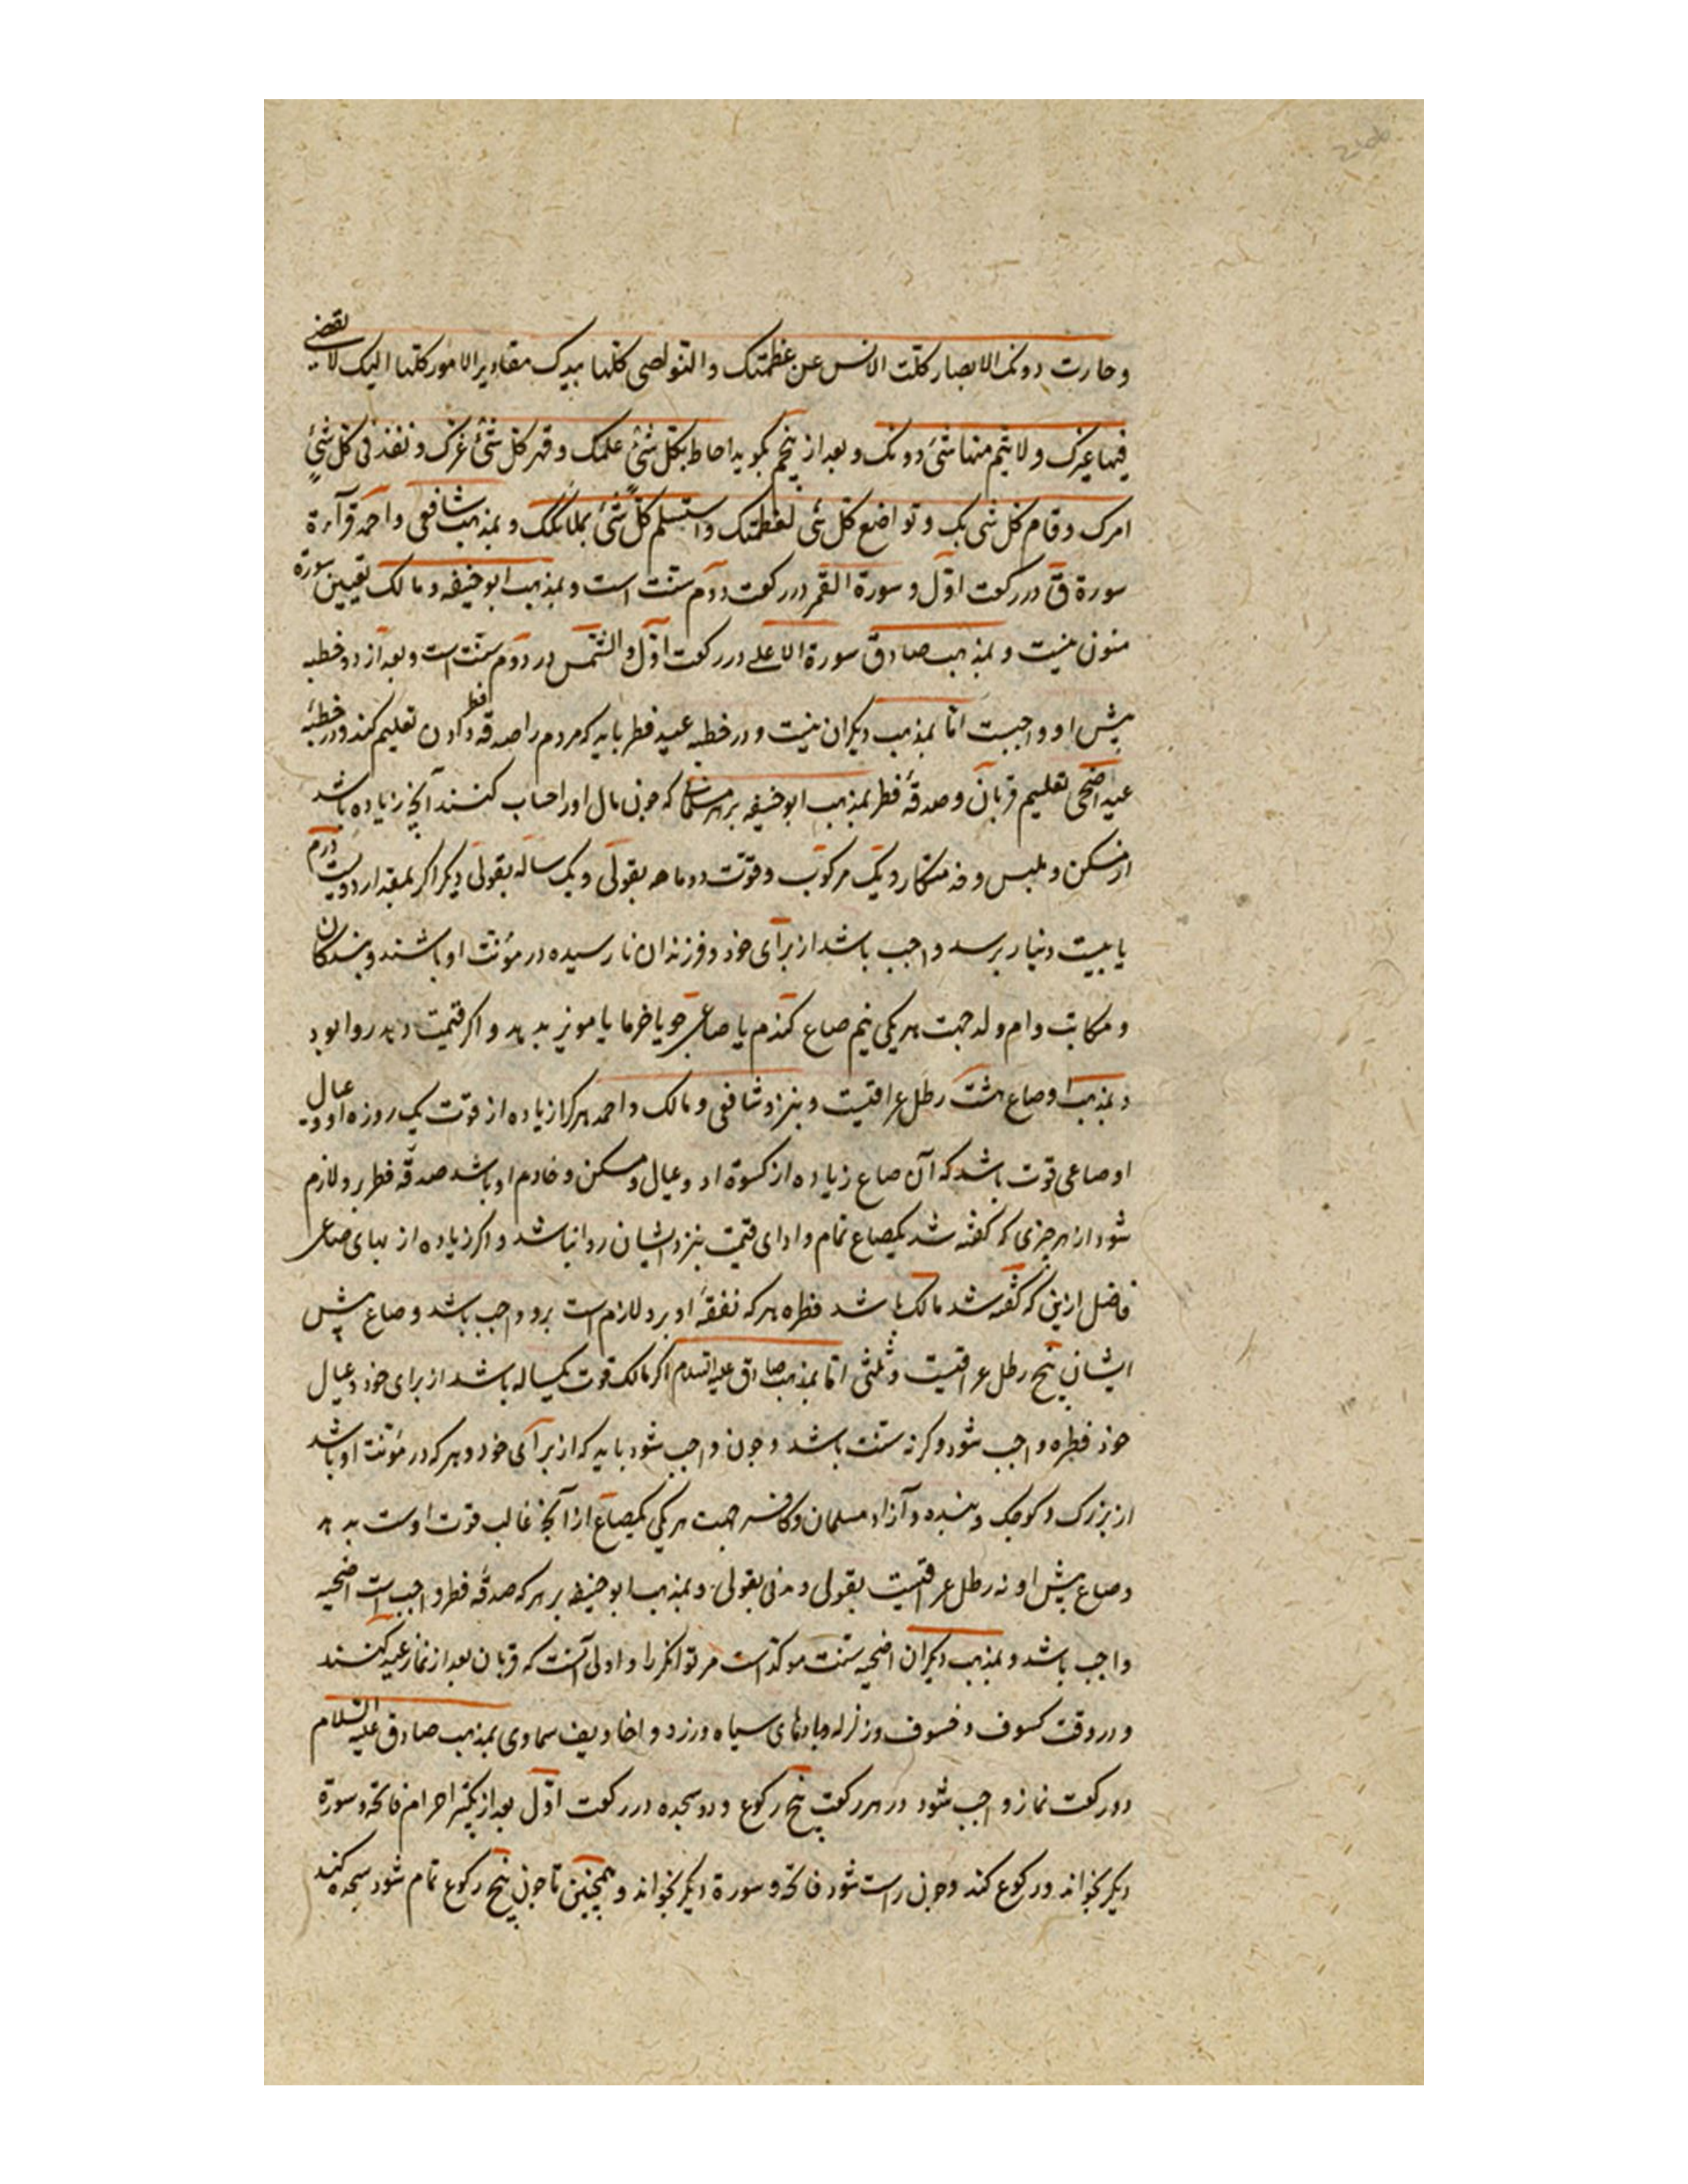 وحارت دونک الابصار کلّت الالسن عن عظمتک والنواصی کلها بیدک مقادیر الامور کلها الیک لا یقضی
فیها غیرک ولا یتم منها شیٔ دونک و بعد از پنجم بگوید احاط بکل شیٔ علمک وقهر کل شیٔ عزک ونفذ فی کل شیٔ
امرک وقام کل شیٔ بک وتواضع کل شیٔ لعظمتک واستسلم کل شیٔ لملکک و بمذهب شافعی و احمد قرآءة
سورة ق در رکعت اوّل و سورة القمر در رکعت دوم سنّت است و بمذهب ابوحنیفه و مالک تعیین سورة
مسنون نیست و بمذهب صادق سورة الاعلی در رکعت اوّل والشمس در دوم سنت است و بعد از دو خطبه
پیش او واجبست امّا بمذهب دیگران نیست و در خطبه عید فطر باید که مردم را صدقه فطر دادن تعلیم کند و در خطبهٔ
عید اضحی تعلیم قربان و صدقهٔ فطر بمذهب ابوحنیفه بر هر مسلمان که چون مال او را حساب کنند آنچه زیاده باشد
از مسکن و ملبس و خدمتکار و یک مرکوب و قوّت دو ماهه بقولی و یک ساله بقولی دیگر اگر بمقدار دویست درم
یا بیست دینار برسد واجب باشد از برای خود و فرزندان نارسیده در مؤنت او باشند و بندکان
و مکاتب و ام ولد جهت هر یکی نیم صاع کندم یا صاعی جو یا خرما یا مویز بدهد و اکر قیمت دهد روا بود
و بمذهب او صاع هشت رطل عراقیست و بنزد شافعی و مالک و احمد هر کرا زیاده از قوّت یک روزه او و عیال
او صاعی قوت باشد که آن صاع زیاده از کسوة او و عیال و مسکن و خادم او باشد صدقهٔ فطر برو لازم
شود از هر چیزی که کفته شد یکصاع تمام و ادای قیمت بنزد ایشان روا نباشد و اکر زیاده از بهای صاعی
فاضل ازین که کفته شد مالک باشد فطره هر که نفقهٔ او برو لازم است برو واجب باشد و صاع پیش
ایشان پنج رطل عراقیست و ثلثی امّا بمذهب صادق علیه السلام اکر مالک قوت یکساله باشد از برای خود و عیال
خود فطره واجب شود و کرنه سنّت باشد و چون واجب شود باید که از برآی خود و هر که در مؤنت او باشد
از بزرک و کوچک و بنده و آزاد مسلمان و کافر جهت هر یکی یکصاع از آنچه غالب قوت اوست بدهد
و صاع پیش او نه رطل عراقیست بقولی و مدنی بقولی و بمذهب ابوحنیفه بر هر که صدقهٔ فطر واجب است اضحیه
واجب باشد و بمذهب دیکران اضحیه سنّت موکّد است مر توانکر را و اولی آنست که قربان بعد از نماز عید کنند
و در وقت کسوف و خسوف و زلزله و بادهای سیاه و زرد و اخاویف سماوی بمذهب صادق علیه السّلام
دو رکعت نماز واجب شود در هر رکعت پنج رکوع و دو سجده در رکعت اوّل بعد از تکبیر احرام فاتحه و سورة
دیکر بخواند و رکوع کند و چون راست شود فاتحه و سورة دیکر بخواند و همچنین تا چون پنج رکوع تمام شود سجده کند